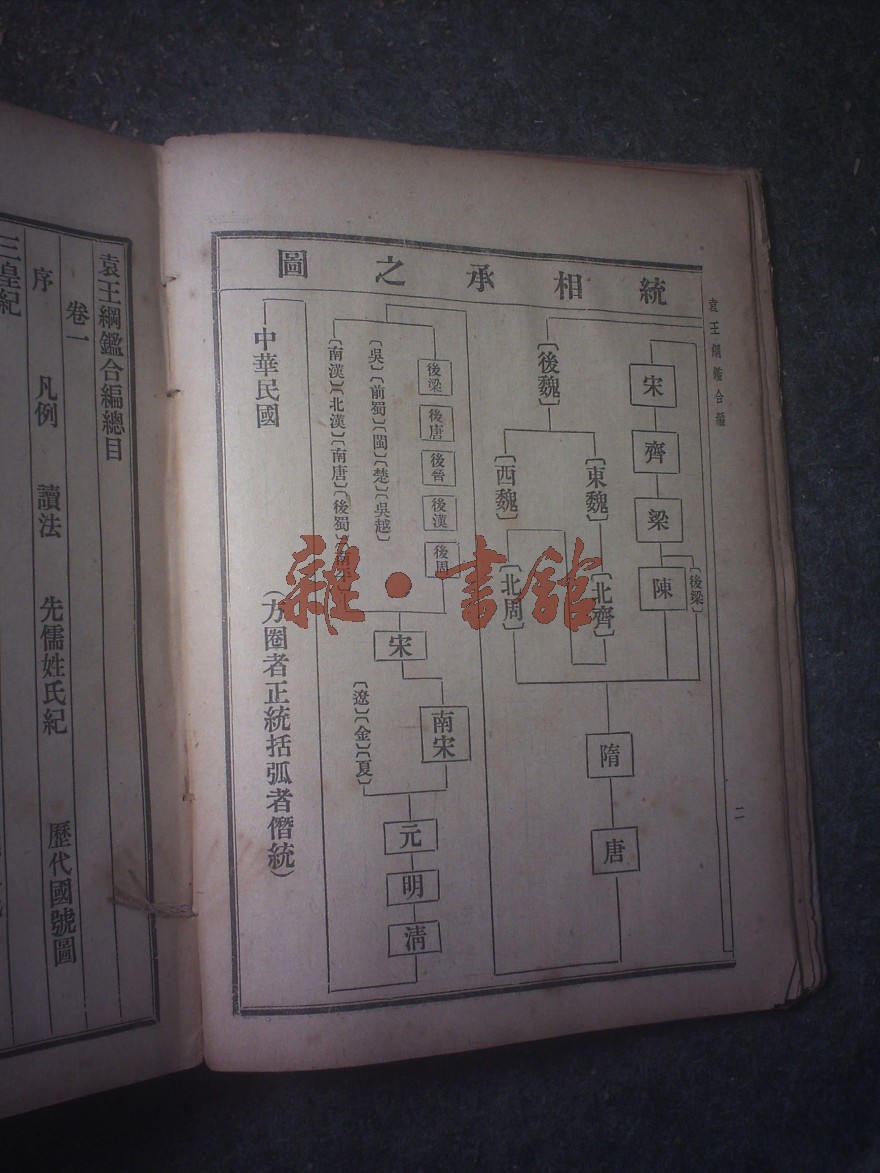 統相承之圖
袁王綱鑑合編
二
宋
齊
梁
陳
〔後梁〕
〔後魏〕
〔東魏〕
〔西魏〕
〔北齊〕
〔北周〕
隋
唐
後梁
後唐
後晉
後漢
後周
〔吳〕〔前蜀〕〔閩〕〔楚〕〔吳越〕
〔南漢〕〔北漢〕〔南唐〕〔後蜀〕
宋
南宋
〔遼〕〔金〕〔夏〕
元
明
清
中華民國
（方圈者正統括弧者僭統）
袁王綱鑑合編總目
卷一
序 凡例 讀法 先儒姓氏紀 歷代國號圖
三皇紀
雜·書館